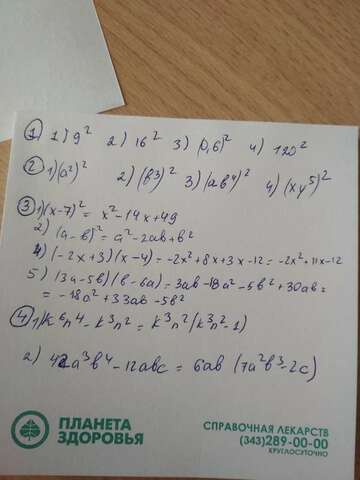 ① 1) 9² 2) 16² 3) (0,6)² 4) 120²
② 1) (a²)² 2) (b³)² 3) (ab⁴)² 4) (xy⁵)²
③ 1) (x-7)² = x²-14x+49
2) (a-b)² = a²-2ab+b²
4) (-2x+3)(x-4) = -2x²+8x+3x-12 = -2x²+11x-12
5) (3a-5b)(b-6a) = 3ab-18a²-5b²+30ab =
= -18a²+33ab-5b²
④ 1) k⁶n⁴-k³n² = k³n²(k³n²-1)
2) 42a³b⁴-12abc = 6ab (7a²b³-2c)
ПЛАНЕТА
ЗДОРОВЬЯ
СПРАВОЧНАЯ ЛЕКАРСТВ
(343)289-00-00
КРУГЛОСУТОЧНО